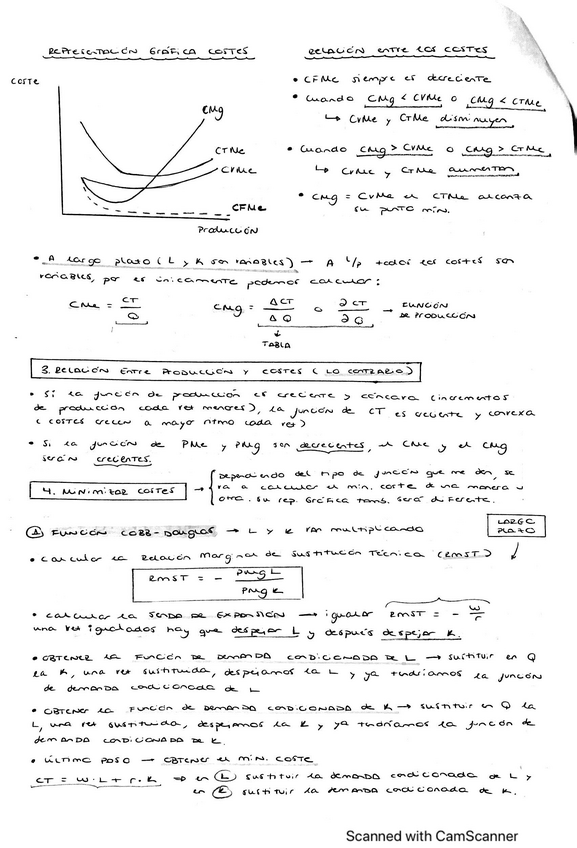 REPRESENTACIÓN GRÁFICA COSTES
COSTE
CMg
CTMe
CVMe
CFMe
PRODUCCIÓN
RELACIÓN ENTRE LOS COSTES
• CFMe siempre es decreciente
• Cuando CMg < CVMe o CMg < CTMe
↳ CVMe y CTMe disminuyen
• Cuando CMg > CVMe o CMg > CTMe
↳ CVMe y CTMe aumentan
• CMg = CVMe el CTMe alcanza
su punto mín.
• A largo plazo (L y K son variables) → A l/p todos los costes son
variables, por es únicamente podemos calcular:
CMe = CT / Q CMg = ΔCT / ΔQ o ∂CT / ∂Q → FUNCIÓN
DE PRODUCCIÓN
↓
TABLA
3. RELACIÓN ENTRE PRODUCCIÓN Y COSTES (LO CONTRARIO)
• Si la función de producción es creciente y cóncava (incrementos
de producción cada vez menores), la función de CT es creciente y convexa
(costes crecen a mayor ritmo cada vez)
• Si la función de PMe y PMg son decrecientes, el CMe y el CMg
serán crecientes.
4. MINIMIZAR COSTES → Dependiendo del tipo de función que me den, se
va a calcular el min. coste de una manera u
otra. Su rep. Gráfica tamb. será diferente.
① FUNCIÓN COBB-Douglas → L y K van multiplicando
LARGO
PLAZO
• Calcular la Relación Marginal de Sustitución Técnica (RMST)
RMST = - PMgL / PMgK
• calcular la SENDA DE EXPANSIÓN → igualar RMST = - w/r
una vez igualados hay que despejar L y después despejar K.
• OBTENER LA FUNCIÓN DE DEMANDA CONDICIONADA DE L → sustituir en Q
la K, una vez sustituida, despejamos la L y ya tendríamos la función
de demanda condicionada de L
• OBTENER LA FUNCIÓN DE DEMANDA CONDICIONADA DE K → sustituir en Q la
L, una vez sustituida, despejamos la K y ya tendríamos la función de
demanda CONDICIONADA DE K.
• ÚLTIMO PASO → OBTENER el MIN. COSTE
CT = W·L + r·K ⇒ en L sustituir la demanda condicionada de L y
en K sustituir la demanda condicionada de K.
Scanned with CamScanner